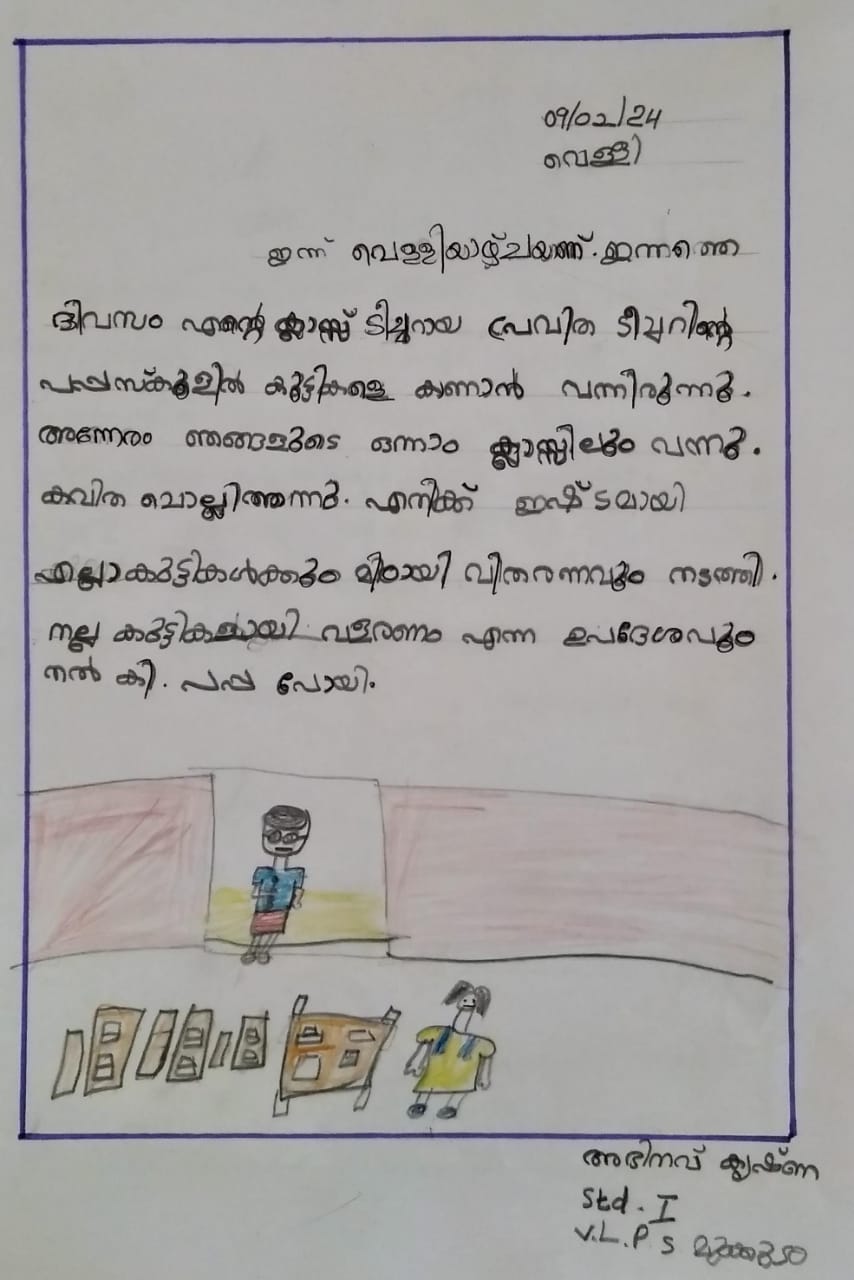 09/02/24
വെള്ളി
ഇന്ന് വെള്ളിയാഴ്ചയണ്. ഇന്നത്തെ
ദിവസം എന്റെ ക്ലാസ്സ് ടിച്ചറായ പ്രവിത ടീച്ചറിന്റെ
പപ്പസ്കൂളിൽ കുട്ടികളെ കണാൻ വന്നിരുന്നു.
അന്നേരം ഞങ്ങളുടെ ഒന്നാം ക്ലാസ്സിലും വന്നു.
കവിത ചൊല്ലിത്തന്നു. എനിക്ക് ഇഷ്ടമായി
എല്ലാകുട്ടികൾക്കും മിഠായി വിതരന്നവും നടത്തി.
നല്ല കുട്ടികളായി വളരണം എന്ന ഉപദേശവും
നൽകി. പപ്പ പോയി.
അഭിനവ് കൃഷ്ണ
Std. I
V.L.P S